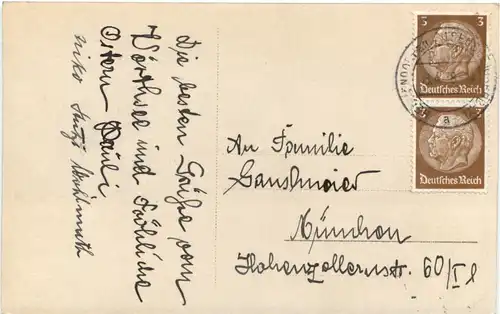 Die besten Grüße vom
Wörthsee und Fröhliche
Ostern Pauli
Niko
An Familie
Ganslmaier
München
Hohenzollernstr. 60/I l
3 3
Deutsches Reich
a
Deutsches Reich